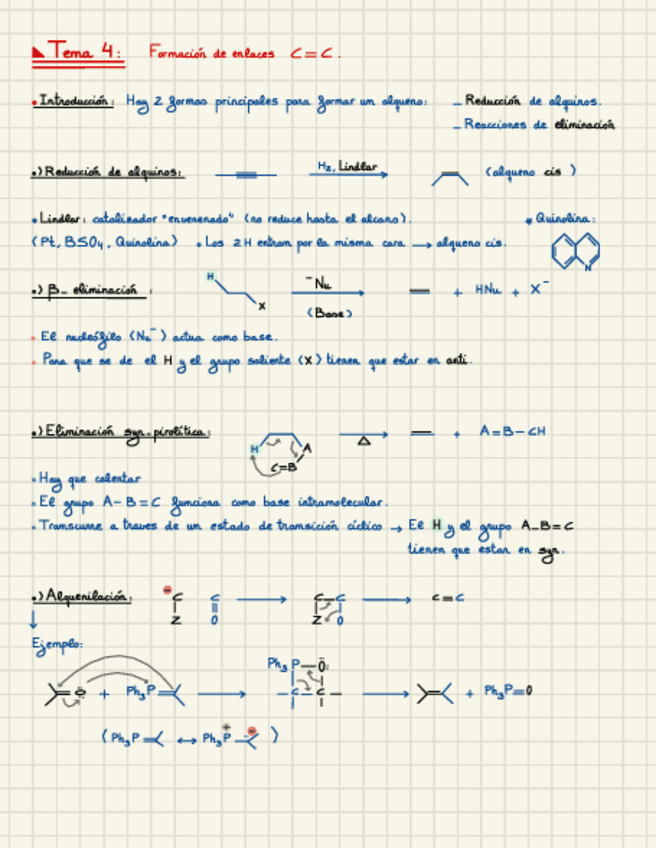 Tema 4: Formación de enlaces C=C.
• Introducción: Hay 2 formas principales para formar un alqueno: - Reducción de alquinos.
- Reacciones de eliminación
•) Reducción de alquinos: H₂, Lindlar (alqueno cis)
• Lindlar: catalizador "envenenado" (no reduce hasta el alcano). • Quinolina:
(Pt, BSO₄, Quinolina) • Los 2 H entran por la misma cara → alqueno cis.
N
•) β- eliminación: H X ⁻Nu (Base) + HNu + X⁻
• El nucleófilo (Nu⁻) actua como base.
• Para que se de el H y el grupo saliente (X) tienen que estar en anti.
•) Eliminación syn-pirolítica: H A C=B Δ + A=B-CH
• Hay que calentar
• El grupo A-B=C funciona como base intramolecular.
• Transcurre a traves de un estado de transición cíclico → El H y el grupo A-B=C
tienen que estar en syn.
•) Alquenilación: ⊖ C Z C O → C-C Z O → C=C
Ejemplo:
Ph₃P-O:
O + Ph₃P= → -C-C- → + Ph₃P=O
(Ph₃P= ↔ Ph₃P⁺ ⊖)